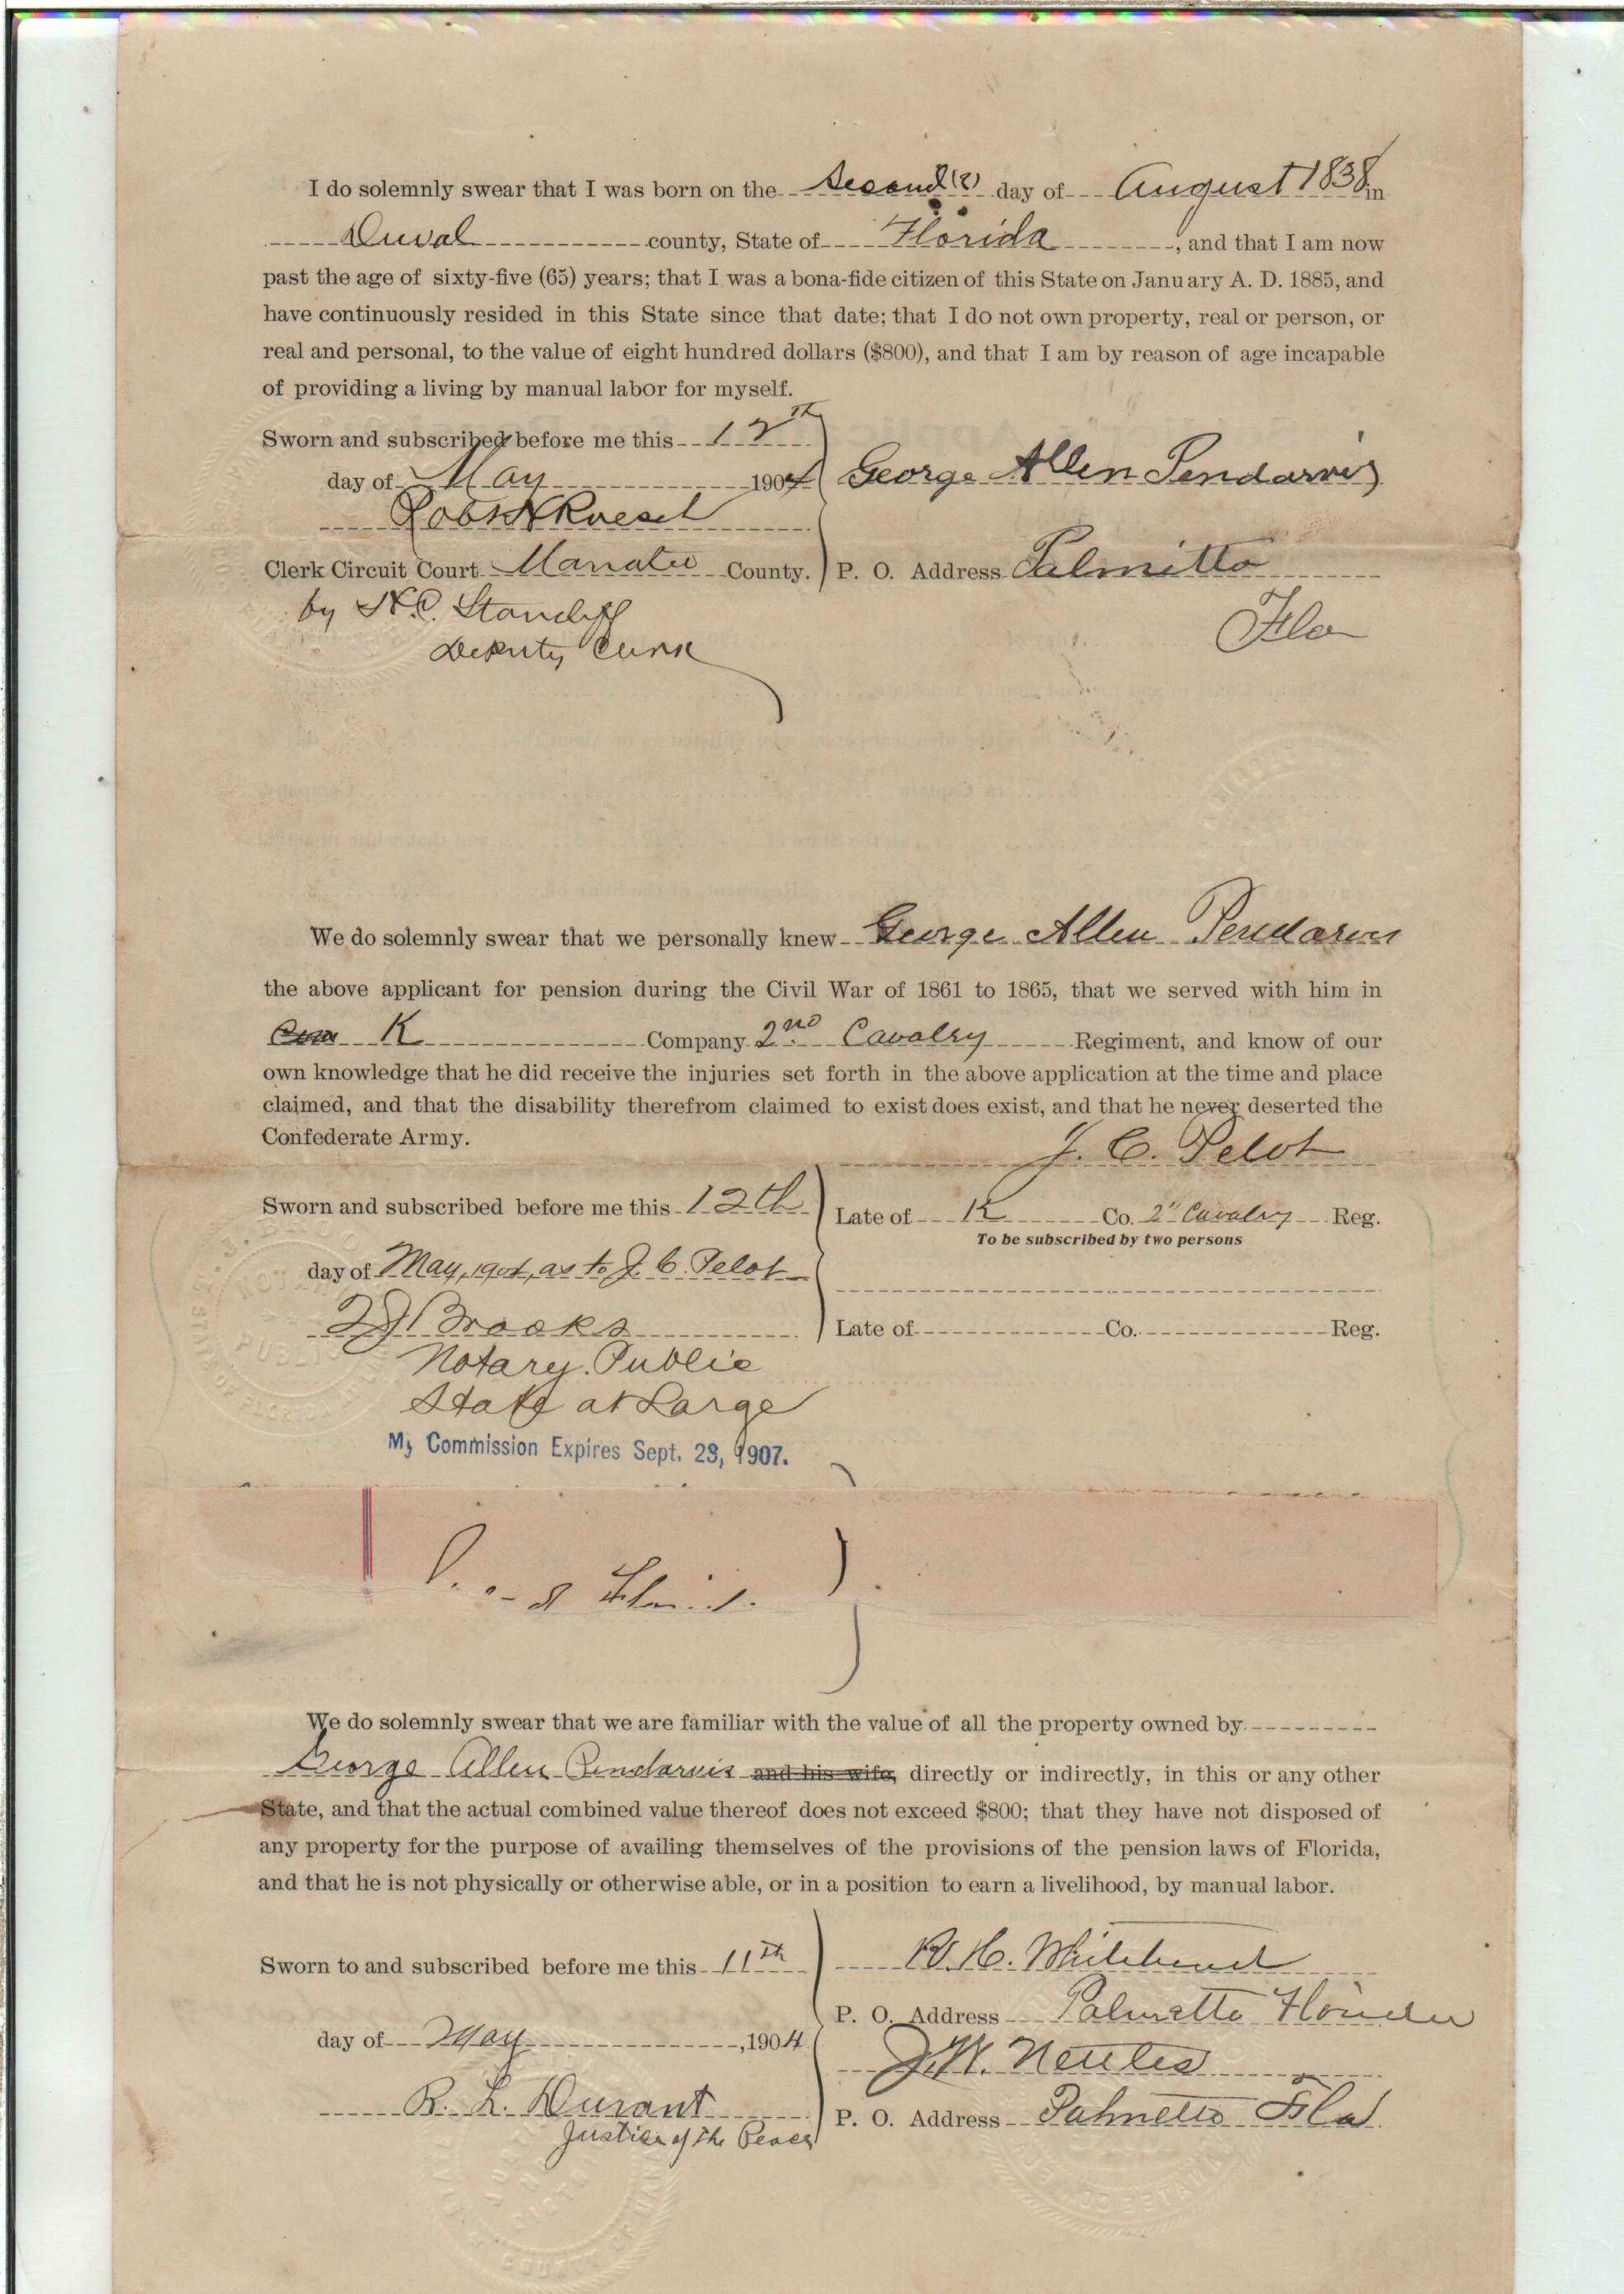 I do solemnly swear that I was born on the Second (2) day of August 1838 in
Duval county, State of Florida, and that I am now
past the age of sixty-five (65) years; that I was a bona-fide citizen of this State on January A. D. 1885, and
have continuously resided in this State since that date; that I do not own property, real or person, or
real and personal, to the value of eight hundred dollars ($800), and that I am by reason of age incapable
of providing a living by manual labor for myself.
Sworn and subscribed before me this 12th
day of May 1904 George Allen Pendarvis
Robt H Roesch
Clerk Circuit Court Manatee County. P. O. Address Palmitto
by Stancliff Fla
Deputy Clerk
We do solemnly swear that we personally knew George Allen Pendarvis
the above applicant for pension during the Civil War of 1861 to 1865, that we served with him in
Com K Company 2nd Cavalry Regiment, and know of our
own knowledge that he did receive the injuries set forth in the above application at the time and place
claimed, and that the disability therefrom claimed to exist does exist, and that he never deserted the
Confederate Army.
J. C. Pelot
Sworn and subscribed before me this 12th Late of K Co. 2" Cavalry Reg.
To be subscribed by two persons
day of May, 1904, as to J. C. Pelot
Brooks Late of Co. Reg.
Notary Public
State at Large
My Commission Expires Sept. 23, 1907.
We do solemnly swear that we are familiar with the value of all the property owned by
George Allen Pendarvis and his wife, directly or indirectly, in this or any other
State, and that the actual combined value thereof does not exceed $800; that they have not disposed of
any property for the purpose of availing themselves of the provisions of the pension laws of Florida,
and that he is not physically or otherwise able, or in a position to earn a livelihood, by manual labor.
Sworn to and subscribed before me this 11th H. Whitehurst
P. O. Address Palmetto Florida
day of May, 1904
J. W. Nettles
R. L. Durant P. O. Address Palmetto Fla
Justice of the Peace